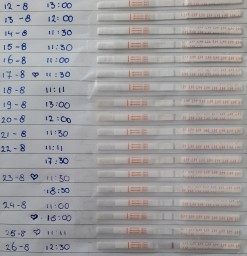 12-8 13:00
13-8 12:00
14-8 11:30
15-8 11:30
16-8 11:00
17-8 ♡ 11:30
18-8 11:11
19-8 13:00
20-8 12:00
21-8 11:30
22-8 11:11
17:30
23-8 ♡ 11:30
18:30
24-8 11:00
♡ 16:00
25-8 ♡ 11:11
26-8 12:30